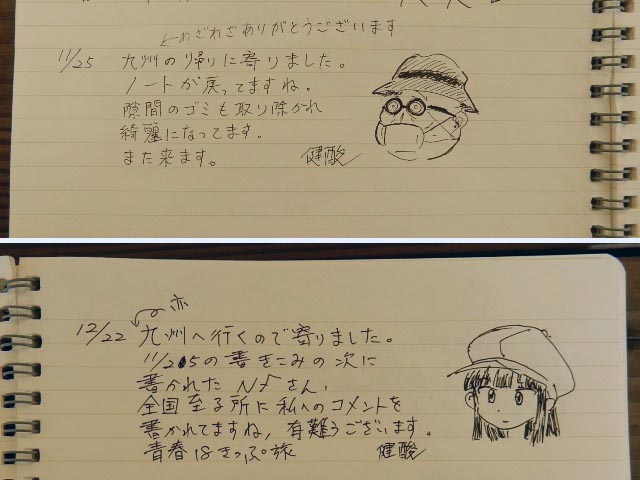 ←わざわざありがとうございます
11/25 九州の帰りに寄りました。
ノートが戻ってますね。
隙間のゴミも取り除かれ
綺麗になってます。
また来ます。 健酸
亦
12/22 九州へ行くので寄りました。
11/25の書きこみの次に
書かれた Nfさん、
全国至る所に私へのコメントを
書かれてますね，有難うございます。
青春18きっぷ旅 健酸